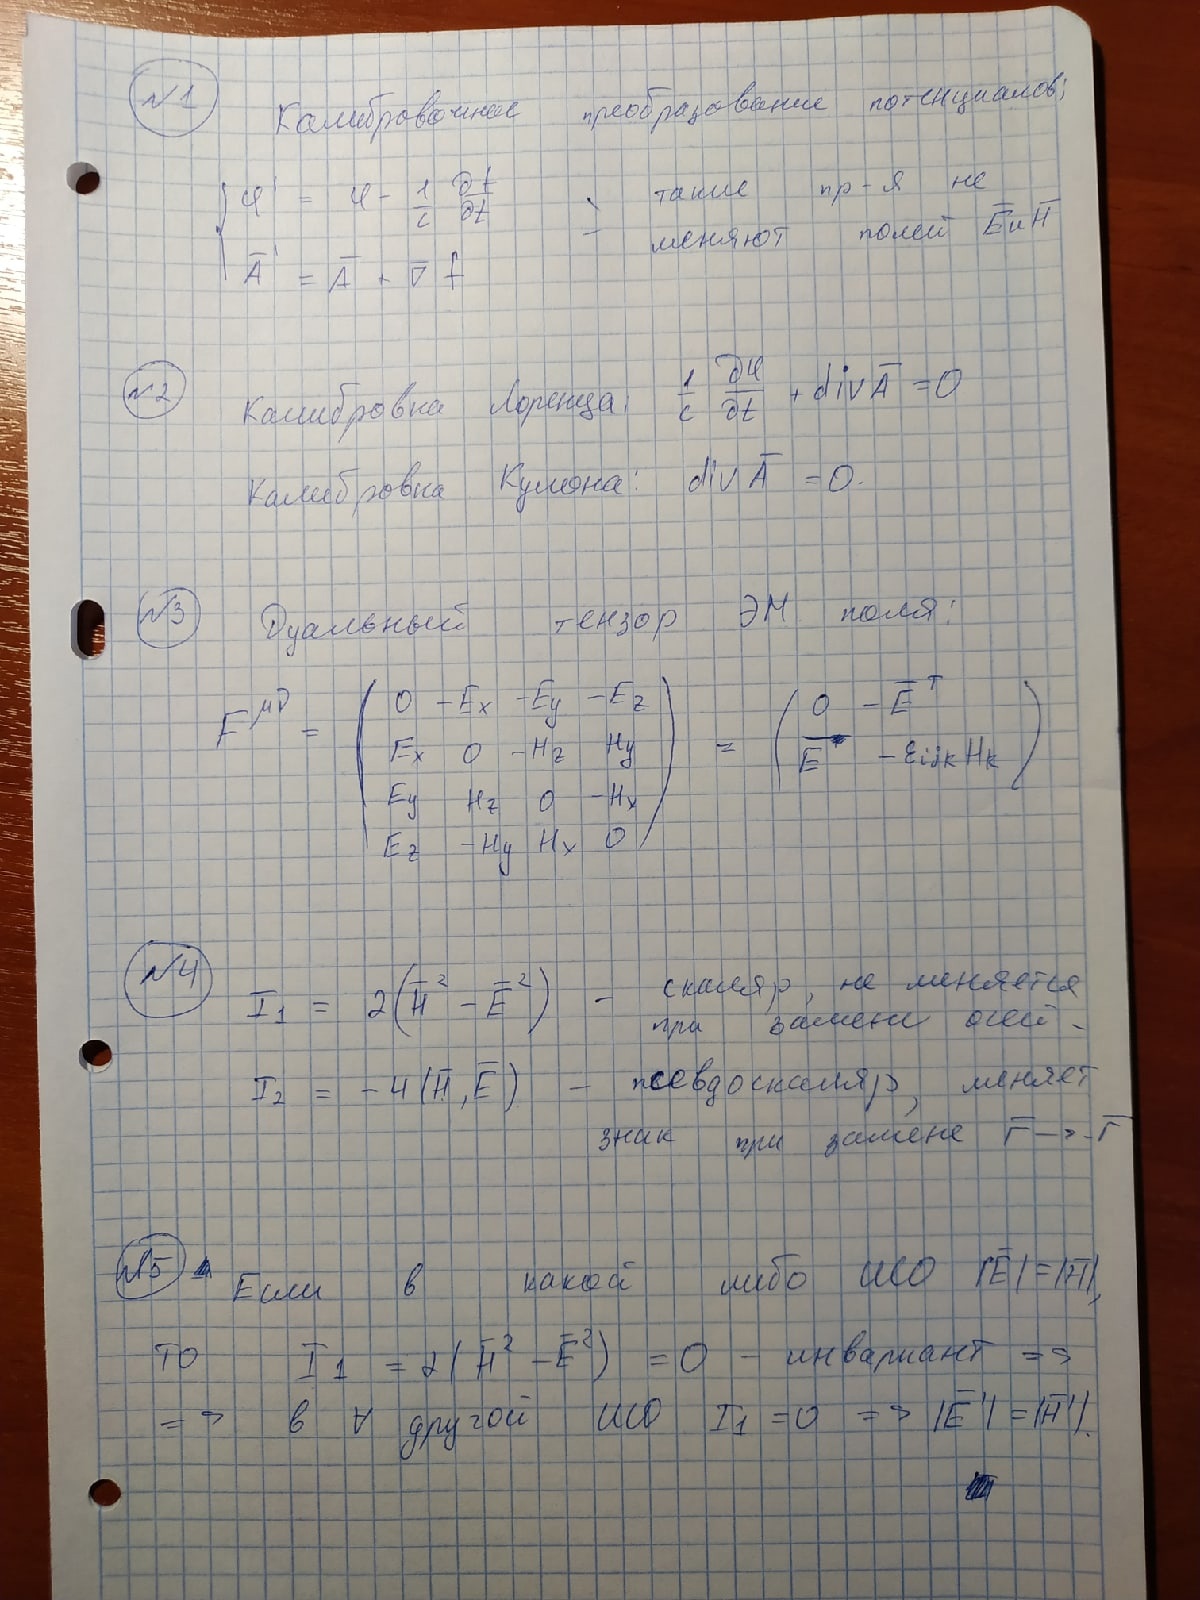 №1 Калибровочное преобразование потенциалов:
φ' = φ - 1/c ∂f/∂t - такие пр-я не
меняют полей E̅ и H̅
A̅' = A̅ + ∇̅ f
№2 Калибровка Лоренца: 1/c ∂φ/∂t + div A̅ = 0
Калибровка Кулона: div A̅ = 0.
№3 Дуальный тензор ЭМ поля:
F^μν = ( 0 -Ex -Ey -Ez = ( 0 -E̅^T
Ex 0 -Hz Hy E̅ -εijk Hk )
Ey Hz 0 -Hx
Ez -Hy Hx 0 )
№4 I1 = 2(H̅² - E̅²) - скаляр, не меняется
при замене осей.
I2 = -4(H̅, E̅) - псевдоскаляр, меняет
знак при замене r̅ -> -r̅
№5 Если в какой либо ИСО |E̅| = |H̅|,
то I1 = 2(H̅² - E̅²) = 0 - инвариант =>
=> в ∀ другой ИСО I1 = 0 => |E̅'| = |H̅'|.